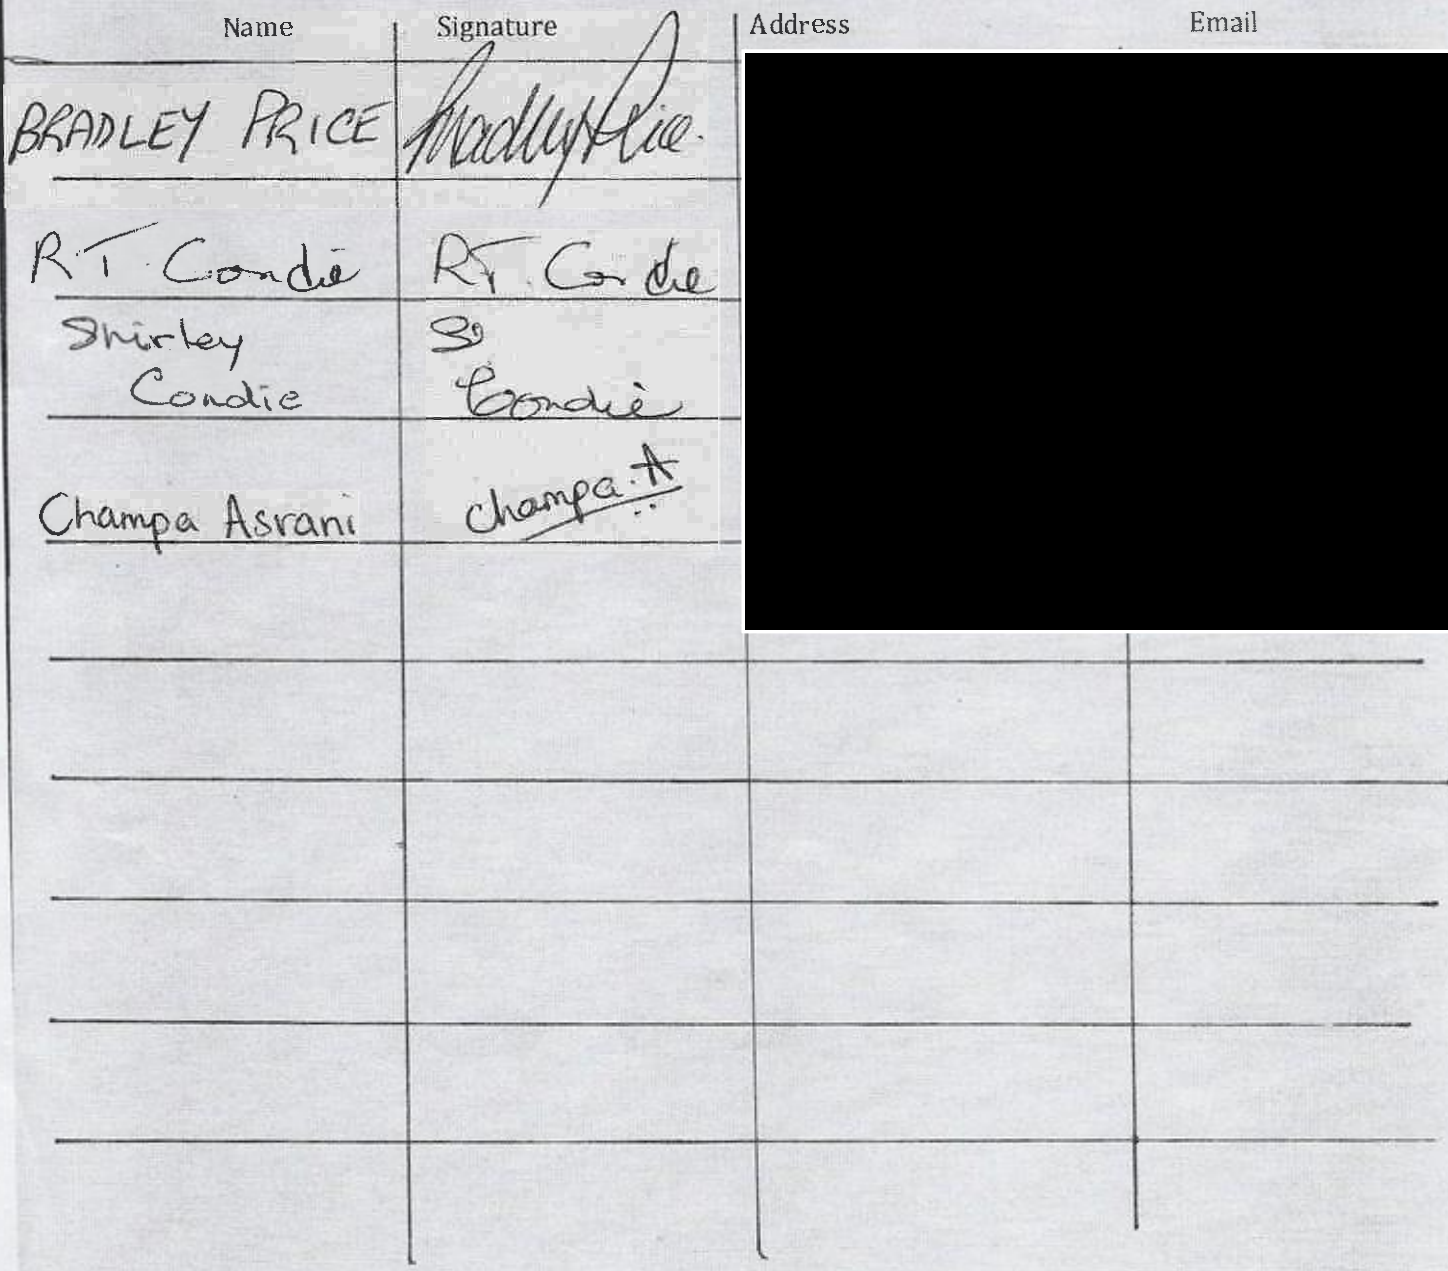 Name Signature Address Email
BRADLEY PRICE Bradley Price.
R.T. Condie R.T. Condie
Shirley S
Condie Condie
Champa Asrani Champa.A